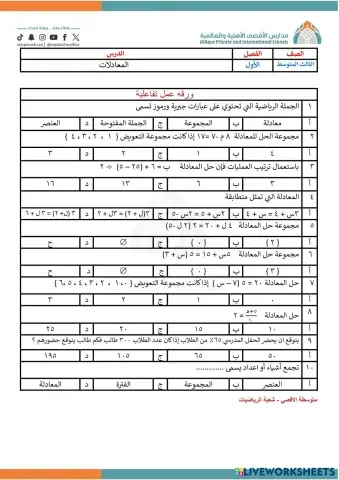 مدارس الأقصى الأهلية والعالمية
AlAqsa Private and International Schools
alaqsa.edu.sa | @aqsaschools
الصف
الفصل
الدرس
الثالث المتوسط
الأول
المعادلات
ورقة عمل تفاعلية
١ الجملة الرياضية التي تحتوي على عبارات جبرية ورموز تسمى
أ معادلة ب المجموعة ج الجملة المفتوحة د العنصر
٢ مجموعة الحل للمعادلة ٨ م - ٧ = ١٧ إذا كانت مجموعة التعويض { ١ ، ٢ ، ٣ ، ٤ }
أ ٤ ب ١ ج ٢ د ٣
٣ باستعمال ترتيب العمليات فإن حل المعادلة ب = ٦ + (٢٥ - ٥) ÷ ٢
أ ٣ ب ٦ ج ١٣ د ١٦
٤ المعادلة التي تمثل متطابقة
أ ٣س + ٤ = س + ٤ ب ٢س + ٥ = ٢س - ٥ ج ٣(ل + ٢) = ٣ل + ٢ د ٣(ل + ٢) = ٣ل + ٦
٥ مجموعة حل المعادلة ٤ ل + ٢٠ = ٢ (٢ ل - ٥)
أ { ٢ } ب { ٠ } ج ∅ د ح
٦ مجموعة حل المعادلة ٥س + ١٥ = ٥ (س + ٣)
أ { ٣ } ب { ٠ } ج ∅ د ح
٧ حل المعادلة ٢٠ = ٥ (٧ – س) إذا كانت مجموعة التعويض { ٠ ، ١ ، ٢ ، ٣ ، ٤ ، ٥ ، ٦ }
أ ٠ ب ١ ج ٢ د ٣
٨ حل المعادلة = ٢
أ ١٠ ب ١٥ ج ٢٠ د ٢٥
٩ يتوقع أن يحضر الحفل المدرسي ٦٥٪ من الطلاب إذا كان عدد الطلاب ٣٠٠ طالب فكم طالب يتوقع حضورهم ؟
أ ٥٠ ب ٦٥ ج ١٠٥ د ١٩٥
١٠ تجمع أشياء أو اعداد يسمى .............
أ العنصر ب المجموعة ج الفترة د المعادلة
متوسطة الأقصى - شعبة الرياضيات
LIVEWORKSHEETS